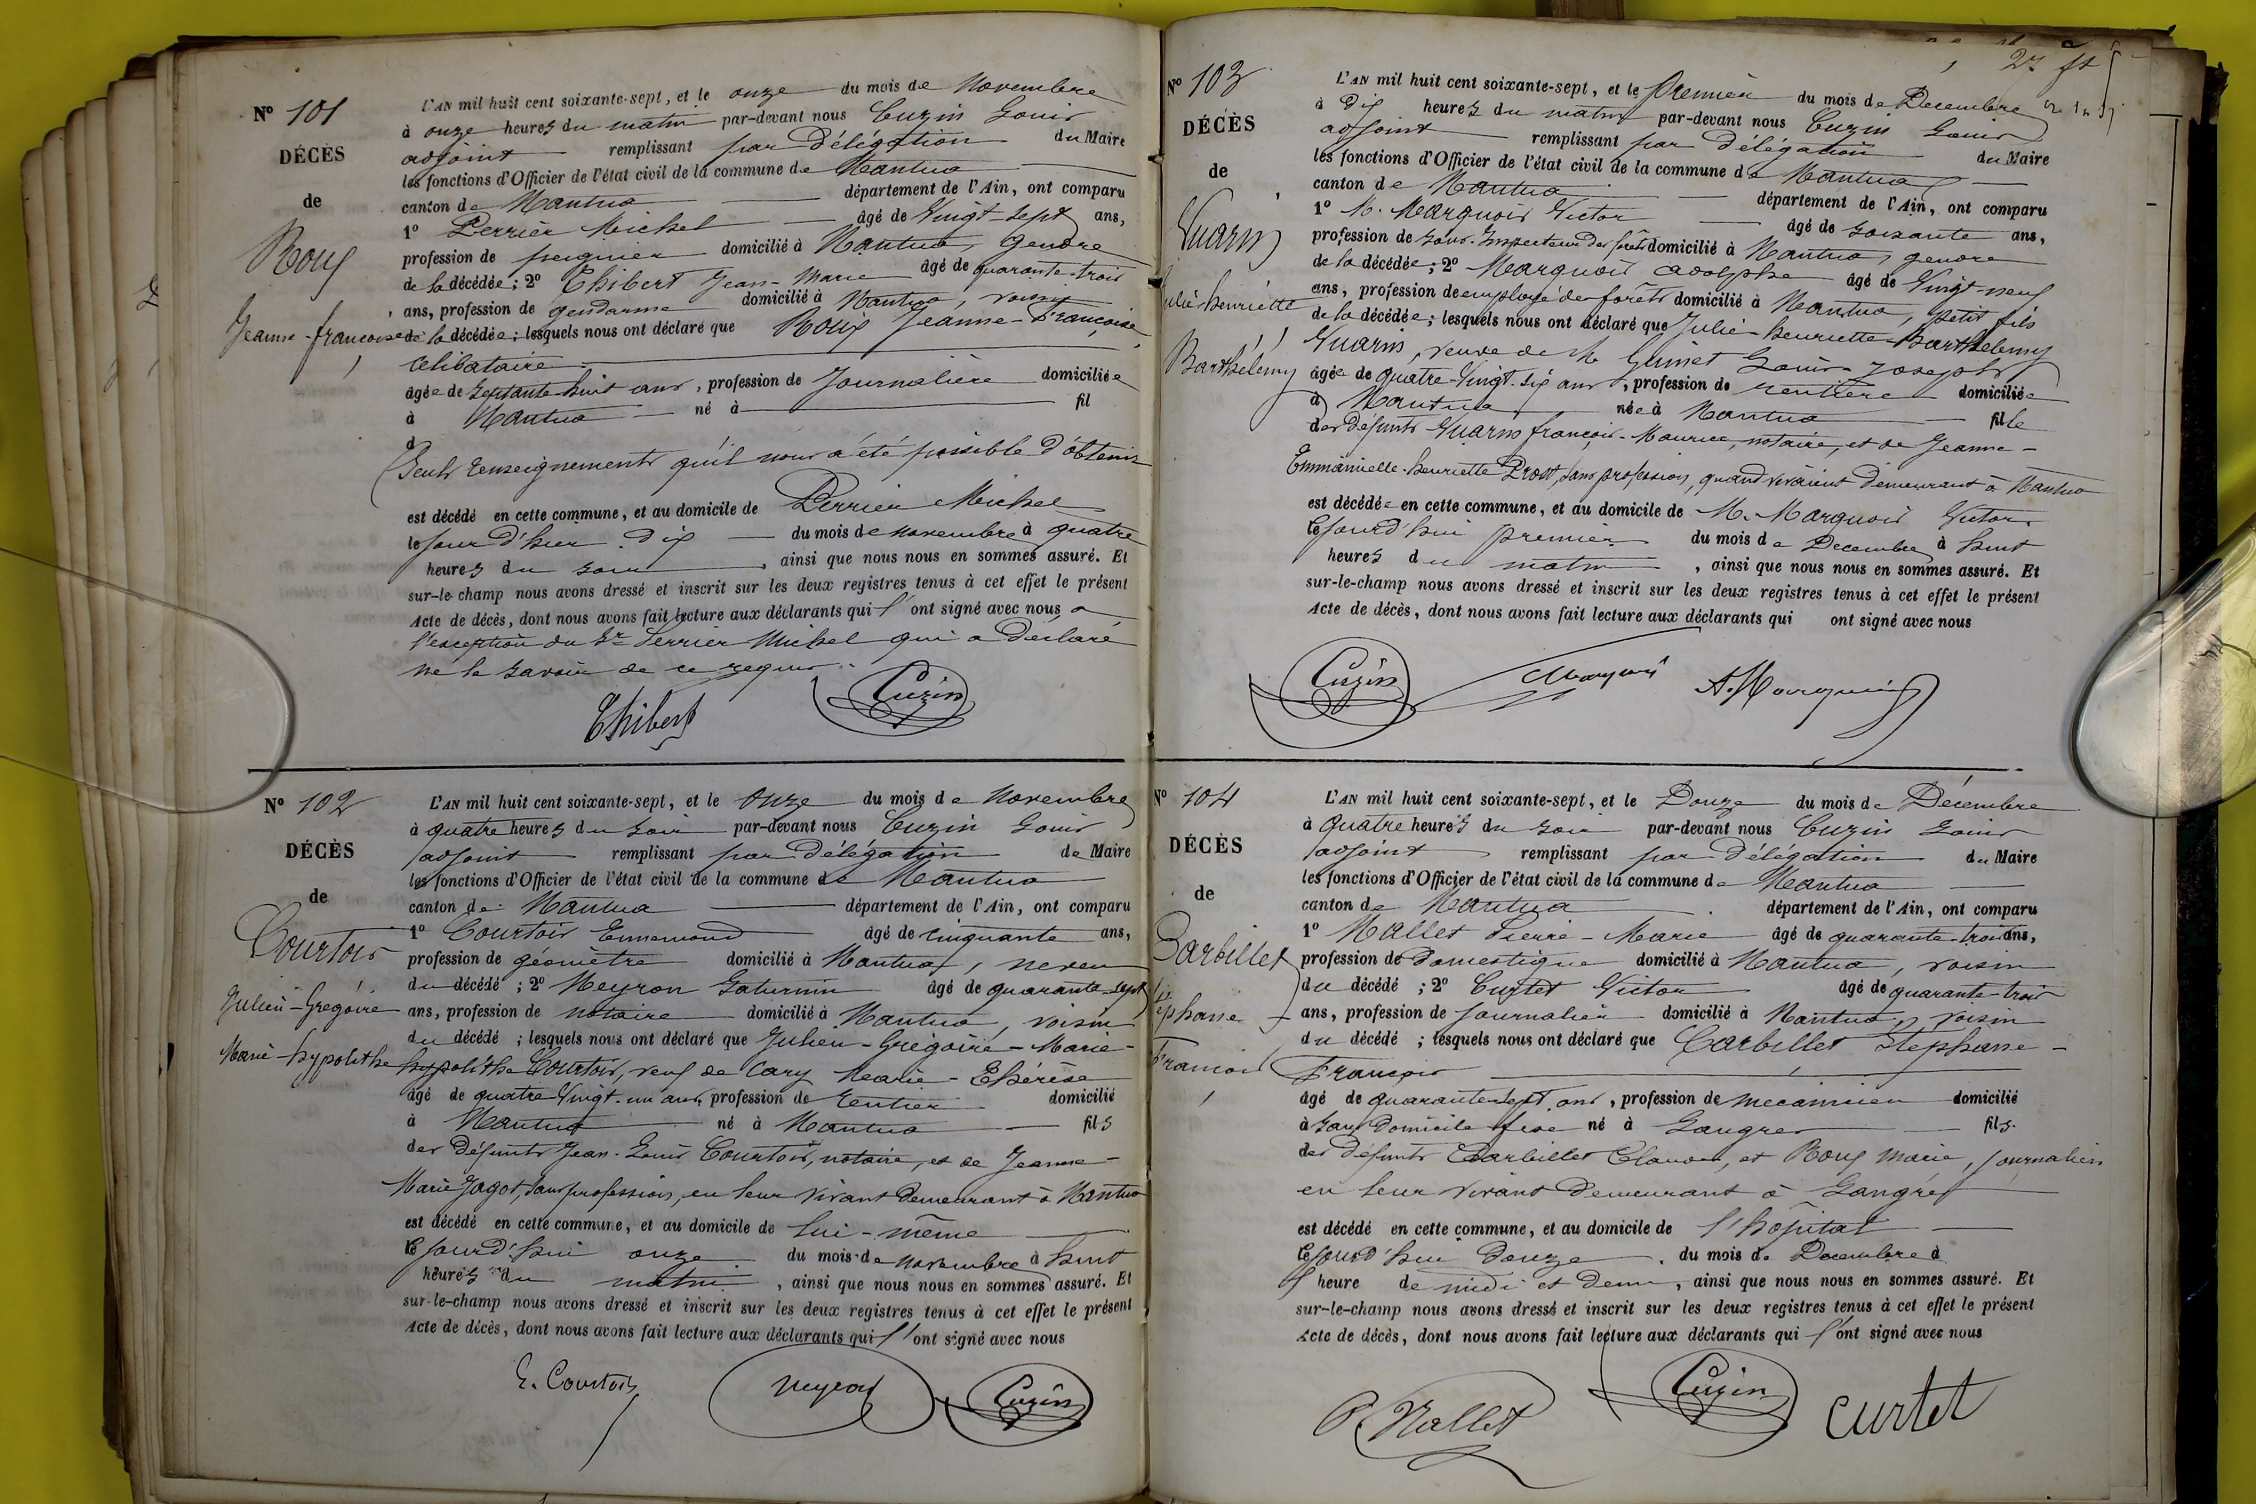 N° 101
DÉCÈS
de
Roux
Jeanne-françoise
L'AN mil huit cent soixante-sept, et le onze du mois de Novembre
à onze heures du matin par-devant nous Cuzin Louis
adjoint remplissant par délégation du Maire
les fonctions d'Officier de l'état civil de la commune de Nantua
canton de Nantua département de l'Ain, ont comparu
1° Perrier Michel âgé de Vingt-sept ans,
profession de peignier domicilié à Nantua, gendre
de la décédée; 2° Thibert Jean-Marie âgé de quarante-trois
ans, profession de gendarme domicilié à Nantua, voisin
de la décédée; lesquels nous ont déclaré que Roux Jeanne-Françoise,
célibataire
âgée de septante-huit ans, profession de Journalière domiciliée
à Nantua né à fil
d
Seuls renseignements qu'il nous a été possible d'obtenir
est décédé en cette commune, et au domicile de Perrier Michel
le jour d'hier dix du mois de novembre à quatre
heures du soir, ainsi que nous nous en sommes assuré. Et
sur-le-champ nous avons dressé et inscrit sur les deux registres tenus à cet effet le présent
Acte de décès, dont nous avons fait lecture aux déclarants qui l'ont signé avec nous à
l'exception du Sr Perrier Michel qui a déclaré
ne le savoir de ce requis.
Thibert Cuzin
N° 102
DÉCÈS
de
Courtois
Julien-Grégoire
Marie-hypolithe
L'AN mil huit cent soixante-sept, et le Onze du mois de Novembre
à quatre heures du soir par-devant nous Cuzin Louis
adjoint remplissant par délégation de Maire
les fonctions d'Officier de l'état civil de la commune de Nantua
canton de Nantua département de l'Ain, ont comparu
1° Courtois Ennemond âgé de cinquante ans,
profession de géomètre domicilié à Nantua, neveu
du décédé; 2° Neyron Saturnin âgé de quarante-sept
ans, profession de notaire domicilié à Nantua, voisin
du décédé; lesquels nous ont déclaré que Julien-Grégoire-Marie-
hypolithe Courtois, veuf de Cary Marie-Thérèse
âgé de quatre-Vingt-un ans, profession de rentier domicilié
à Nantua né à Nantua fils
des défunts Jean-Louis Courtois, notaire, et de Jeanne-
Marie Jagot, sans profession, en leur vivant demeurant à Nantua
est décédé en cette commune, et au domicile de lui-même
cejourd'hui onze du mois de novembre à huit
heures du matin, ainsi que nous nous en sommes assuré. Et
sur-le-champ nous avons dressé et inscrit sur les deux registres tenus à cet effet le présent
Acte de décès, dont nous avons fait lecture aux déclarants qui l'ont signé avec nous
E. Courtois Neyron Cuzin
N° 103
DÉCÈS
de
Vuarin
Julie-henriette
Barthélemy
L'AN mil huit cent soixante-sept, et le Premier du mois de Décembre
à dix heures du matin par-devant nous Cuzin Louis
adjoint remplissant par délégation du Maire
les fonctions d'Officier de l'état civil de la commune de Nantua
canton de Nantua département de l'Ain, ont comparu
1° M. Marquois Victor âgé de soixante ans,
profession de sous-Inspecteur des forêts domicilié à Nantua, gendre
de la décédée; 2° Marquois adolphe âgé de Vingt-neuf
ans, profession de employé des forêts domicilié à Nantua, petit fils
de la décédée; lesquels nous ont déclaré que Julie-henriette-Barthélemy
Vuarin, veuve de Mr Guinet Louis Joseph
âgée de quatre-Vingt-six ans, profession de rentière domiciliée
à Nantua née à Nantua fille
des défunts Vuarin françois-Maurice, notaire, et de Jeanne-
Emmanuelle-henriette Prost, sans profession, quand vivaient demeurant à Nantua
est décédée en cette commune, et au domicile de M. Marquois Victor
cejourd'hui premier du mois de Décembre à huit
heures du matin, ainsi que nous nous en sommes assuré. Et
sur-le-champ nous avons dressé et inscrit sur les deux registres tenus à cet effet le présent
Acte de décès, dont nous avons fait lecture aux déclarants qui ont signé avec nous
Cuzin Marquois A. Marquois
N° 104
DÉCÈS
de
Carbillet
Stephane
François
L'AN mil huit cent soixante-sept, et le Douze du mois de Décembre
à quatre heures du soir par-devant nous Cuzin Louis
adjoint remplissant par délégation du Maire
les fonctions d'Officier de l'état civil de la commune de Nantua
canton de Nantua département de l'Ain, ont comparu
1° Nallet Pierre-Marie âgé de quarante-trois ans,
profession de domestique domicilié à Nantua, voisin
du décédé; 2° Curtet Victor âgé de quarante-trois
ans, profession de journalier domicilié à Nantua, voisin
du décédé; lesquels nous ont déclaré que Carbillet Stephane-
François
âgé de quarante-sept ans, profession de mecanicien domicilié
à sans domicile fixe né à Langres fils
des défunts Carbillet Claude, et Roux Marie, journaliers
en leur vivant demeurant à Langres
est décédé en cette commune, et au domicile de l'hôpital
cejourd'hui Douze du mois de Decembre à
l'heure de midi et demi, ainsi que nous nous en sommes assuré. Et
sur-le-champ nous avons dressé et inscrit sur les deux registres tenus à cet effet le présent
Acte de décès, dont nous avons fait lecture aux déclarants qui l'ont signé avec nous
P. Nallet Cuzin Curtet